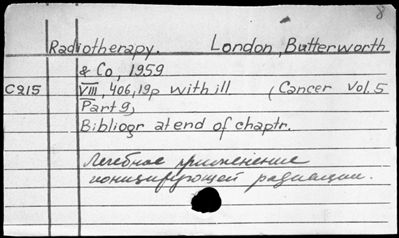 8
Radiotherapy. London, Butterworth
& Co, 1959
C215 VIII, 406, 19p with ill (Cancer Vol. 5
Part 9)
Bibliogr at end of chaptr.
Лечебное применение
ионицирующей радиации.